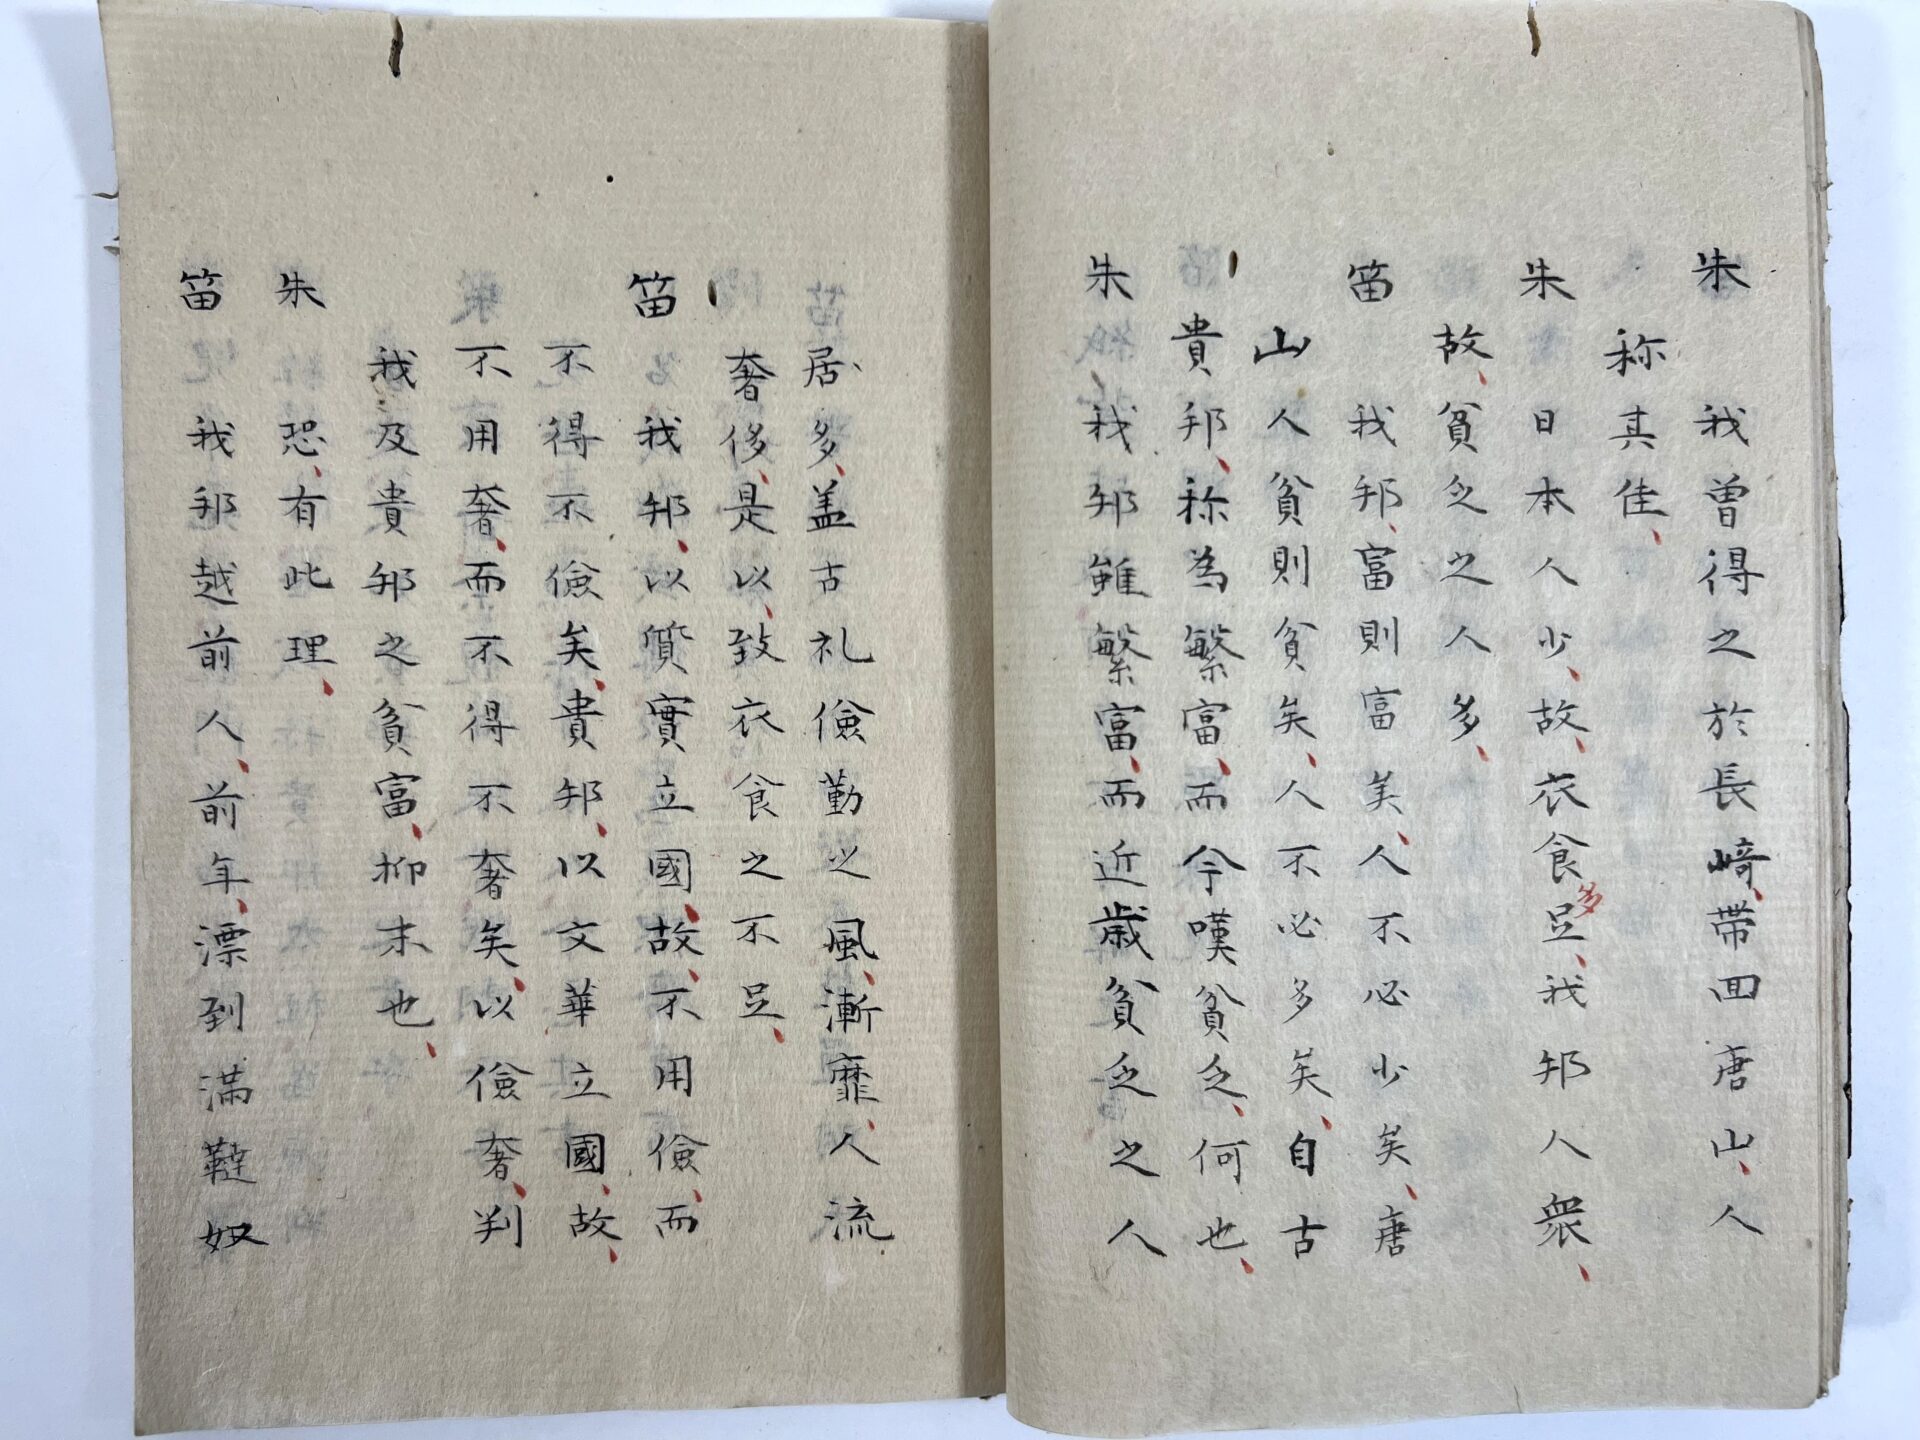 朱　我曽得之於長﨑、帯回唐山、人
称其佳、
朱　日本人少、故、衣食多足、我邦人衆、
故、貧乏之人多、
笛　我邦、富則富矣、人不必少矣、唐
山人貧則貧矣、人不必多矣、自古
貴邦、称為繁富、而今嘆貧乏、何也、
朱　我邦雖繁富、而近歳貧乏之人
居多、盖古礼儉勤之風、漸靡、人流
奢侈、是以、致衣食之不足、
笛　我邦、以質實立國、故、不用儉、而
不得不儉矣、貴邦、以文華立國、故、
不用奢、而不得不奢矣、以儉奢、判
我及貴邦之貧富、抑末也、
朱　恐、有此理、
笛　我邦越前人、前年、漂到滿韃奴